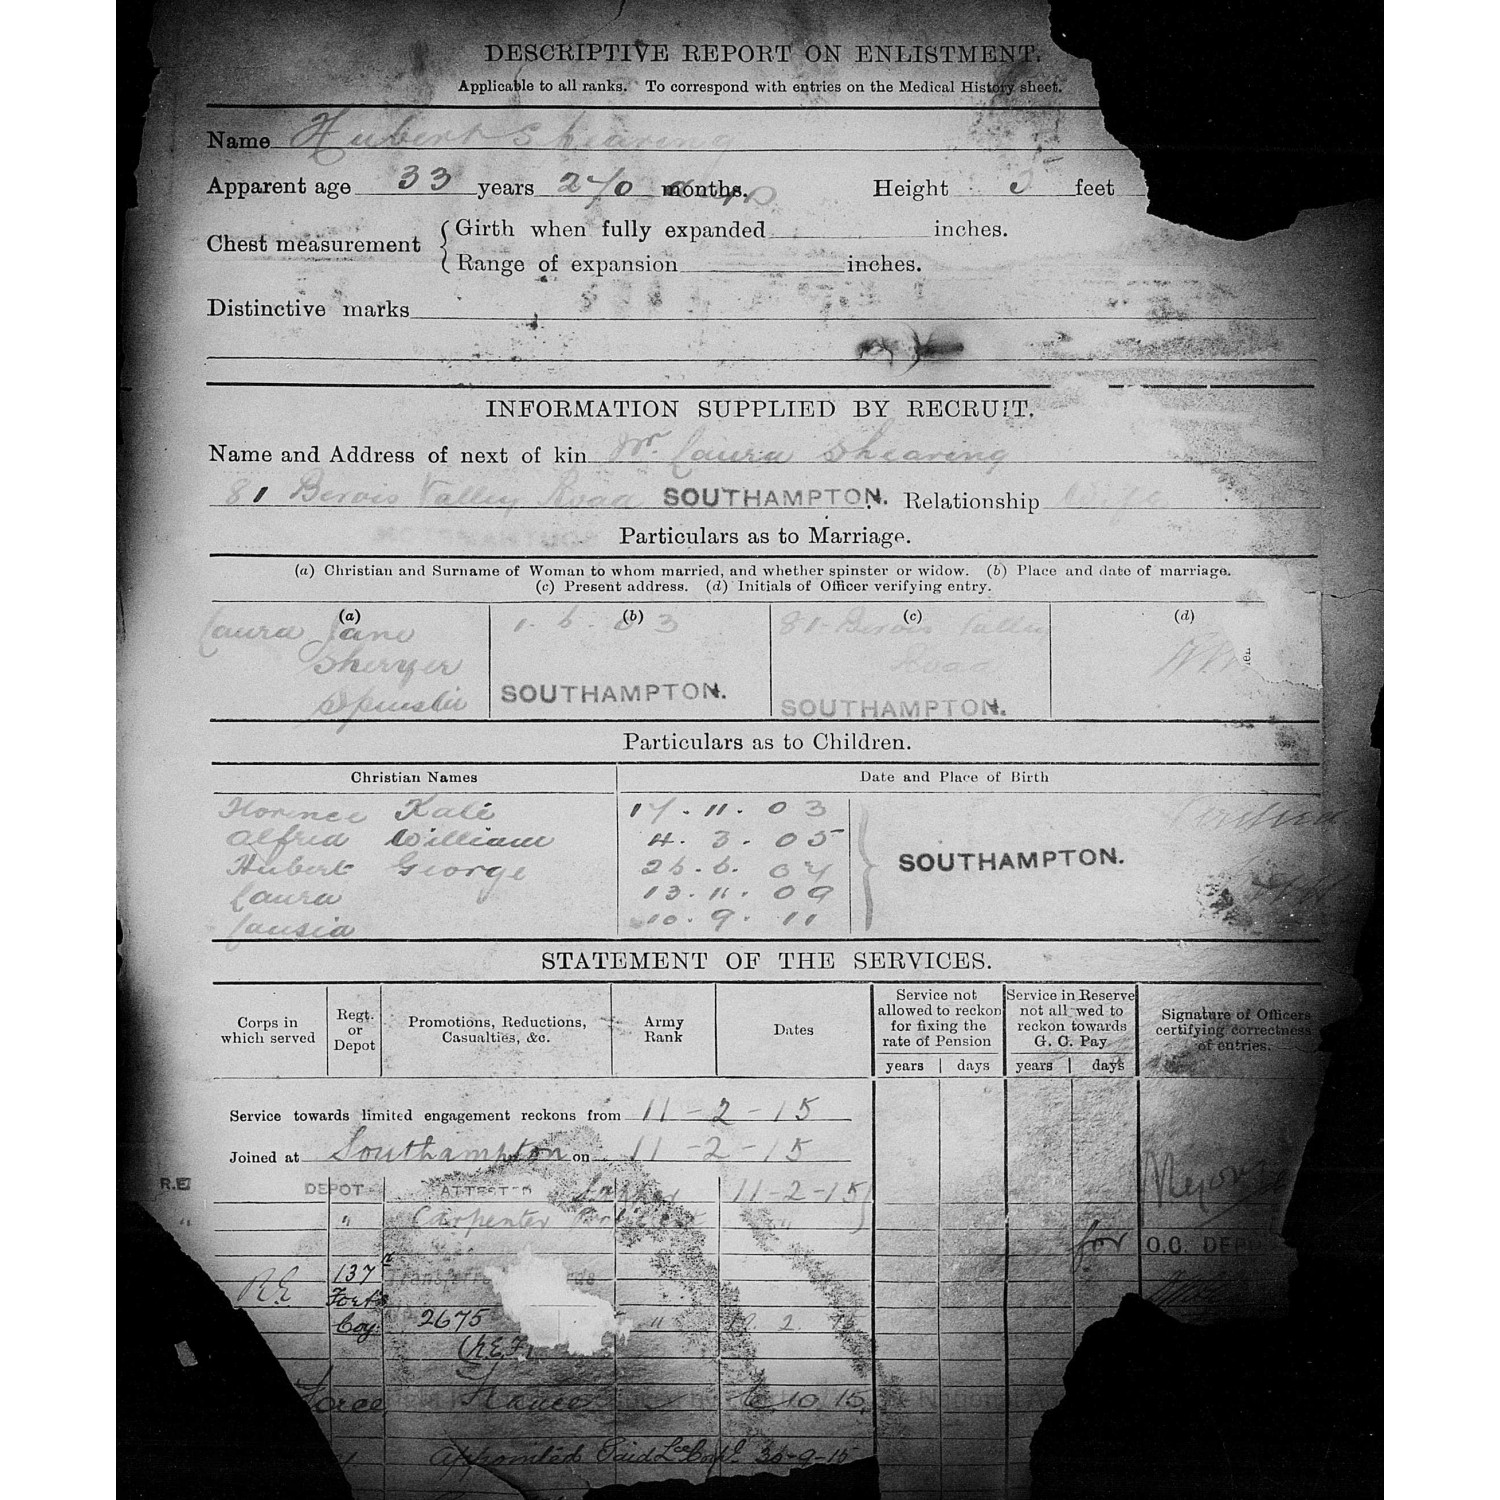 DESCRIPTIVE REPORT ON ENLISTMENT.
Applicable to all ranks. To correspond with entries on the Medical History sheet.
Name Hubert Shearing
Apparent age 33 years 270 months. Height 5 feet
Chest measurement { Girth when fully expanded inches.
Range of expansion inches.
Distinctive marks
INFORMATION SUPPLIED BY RECRUIT.
Name and Address of next of kin Laura Shearing
81 Bevois Valley Road SOUTHAMPTON. Relationship Wife
Particulars as to Marriage.
(a) Christian and Surname of Woman to whom married, and whether spinster or widow. (b) Place and date of marriage.
(c) Present address. (d) Initials of Officer verifying entry.
(a) (b) (c) (d)
Laura Jane 1. 6. 03 81 Bevois Valley
Road
Spinster SOUTHAMPTON. SOUTHAMPTON.
Particulars as to Children.
Christian Names Date and Place of Birth
Florence Kate 17. 11. 03
Alfred William 4. 3. 05
Hubert George 26. 6. 07 SOUTHAMPTON.
Laura 13. 11. 09
10. 9. 11
STATEMENT OF THE SERVICES.
Corps in which served Regt. or Depot Promotions, Reductions, Casualties, &c. Army Rank Dates Service not allowed to reckon for fixing the rate of Pension Service in Reserve not allowed to reckon towards G. C. Pay Signature of Officers certifying correctness of entries.
years days years days
Service towards limited engagement reckons from 11-2-15
Joined at Southampton on 11-2-15
R.E. DEPOT ATTESTED Sapper 11-2-15
" " Carpenter "
for O.C. DEPOT
R.E. 137
Forts
Coy. 2675 " 2. 15
Force France 10 15
Appointed Paid L/Corpl. 30-9-15